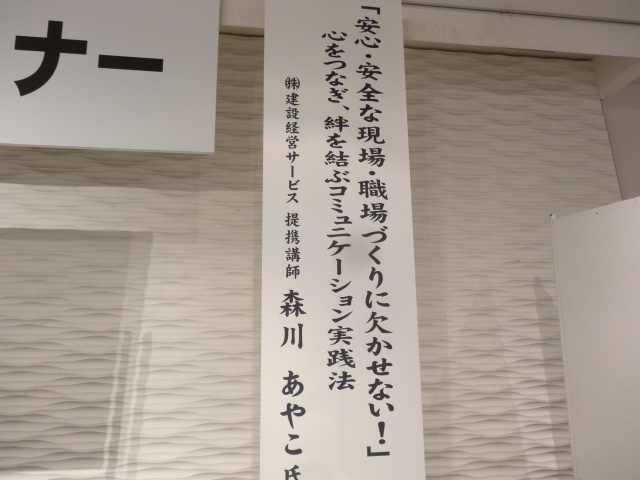 ナー
「安心・安全な現場・職場づくりに欠かせない！」
心をつなぎ、絆を結ぶコミュニケーション実践法
㈱建設経営サービス 提携講師 森川 あやこ 氏